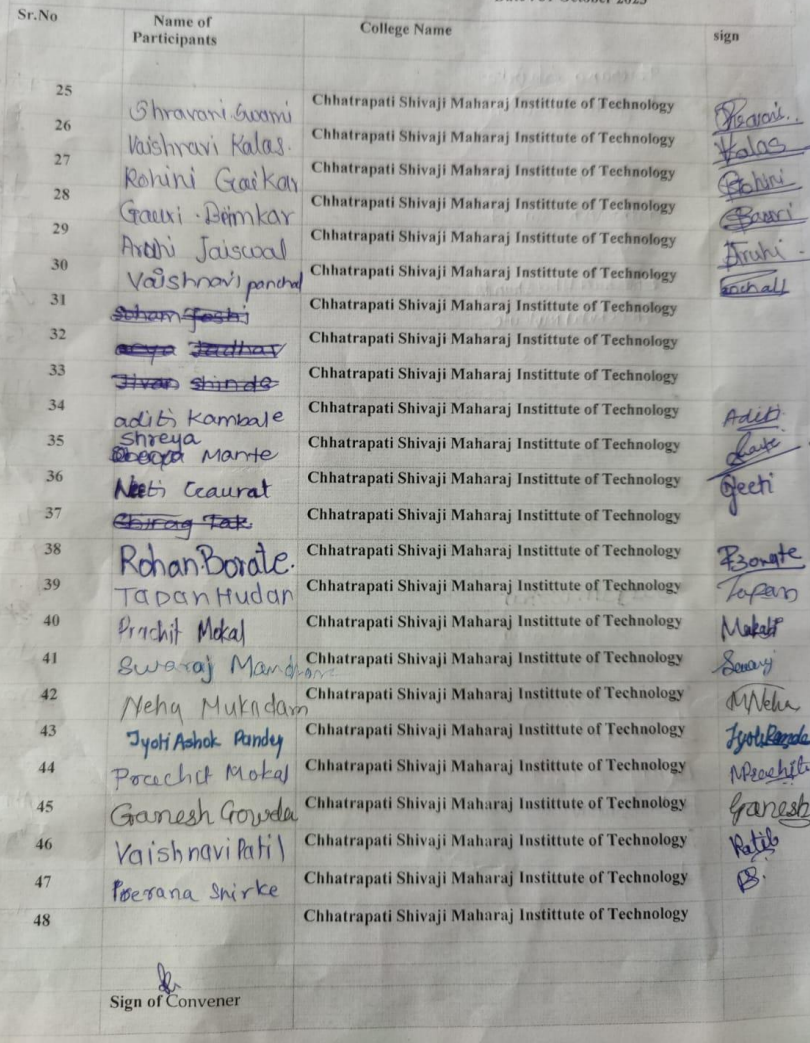 Sr.No Name of Participants College Name sign
25 Shravani Swami Chhatrapati Shivaji Maharaj Instittute of Technology
26 Vaishnavi Kalas. Chhatrapati Shivaji Maharaj Instittute of Technology Kalas
27 Rohini Gaikar Chhatrapati Shivaji Maharaj Instittute of Technology Rohini
28 Gauri Chhatrapati Shivaji Maharaj Instittute of Technology Gauri
29 Arohi Jaiswal Chhatrapati Shivaji Maharaj Instittute of Technology
30 Vaishnavi panchal Chhatrapati Shivaji Maharaj Instittute of Technology
31 Soham Joshi Chhatrapati Shivaji Maharaj Instittute of Technology
32 Jadhav Chhatrapati Shivaji Maharaj Instittute of Technology
33 Jivan shinde Chhatrapati Shivaji Maharaj Instittute of Technology
34 aditi Kambale Chhatrapati Shivaji Maharaj Instittute of Technology Aditi
35 Shreya Mante Chhatrapati Shivaji Maharaj Instittute of Technology
36 Neeti Gaurat Chhatrapati Shivaji Maharaj Instittute of Technology Neeti
37 Chirag Tak Chhatrapati Shivaji Maharaj Instittute of Technology
38 Rohan.Borate. Chhatrapati Shivaji Maharaj Instittute of Technology
39 Tapan Hudan Chhatrapati Shivaji Maharaj Instittute of Technology Tapan
40 Prachit Mokal Chhatrapati Shivaji Maharaj Instittute of Technology
41 Swaraj Chhatrapati Shivaji Maharaj Instittute of Technology
42 Neha Mukadam Chhatrapati Shivaji Maharaj Instittute of Technology MNeha
43 Jyoti Ashok Pandey Chhatrapati Shivaji Maharaj Instittute of Technology
44 Prachit Mokal Chhatrapati Shivaji Maharaj Instittute of Technology
45 Ganesh Gowda Chhatrapati Shivaji Maharaj Instittute of Technology Ganesh
46 Vaishnavi Patil Chhatrapati Shivaji Maharaj Instittute of Technology Patil
47 Prerana Shirke Chhatrapati Shivaji Maharaj Instittute of Technology
48 Chhatrapati Shivaji Maharaj Instittute of Technology
Sign of Convener